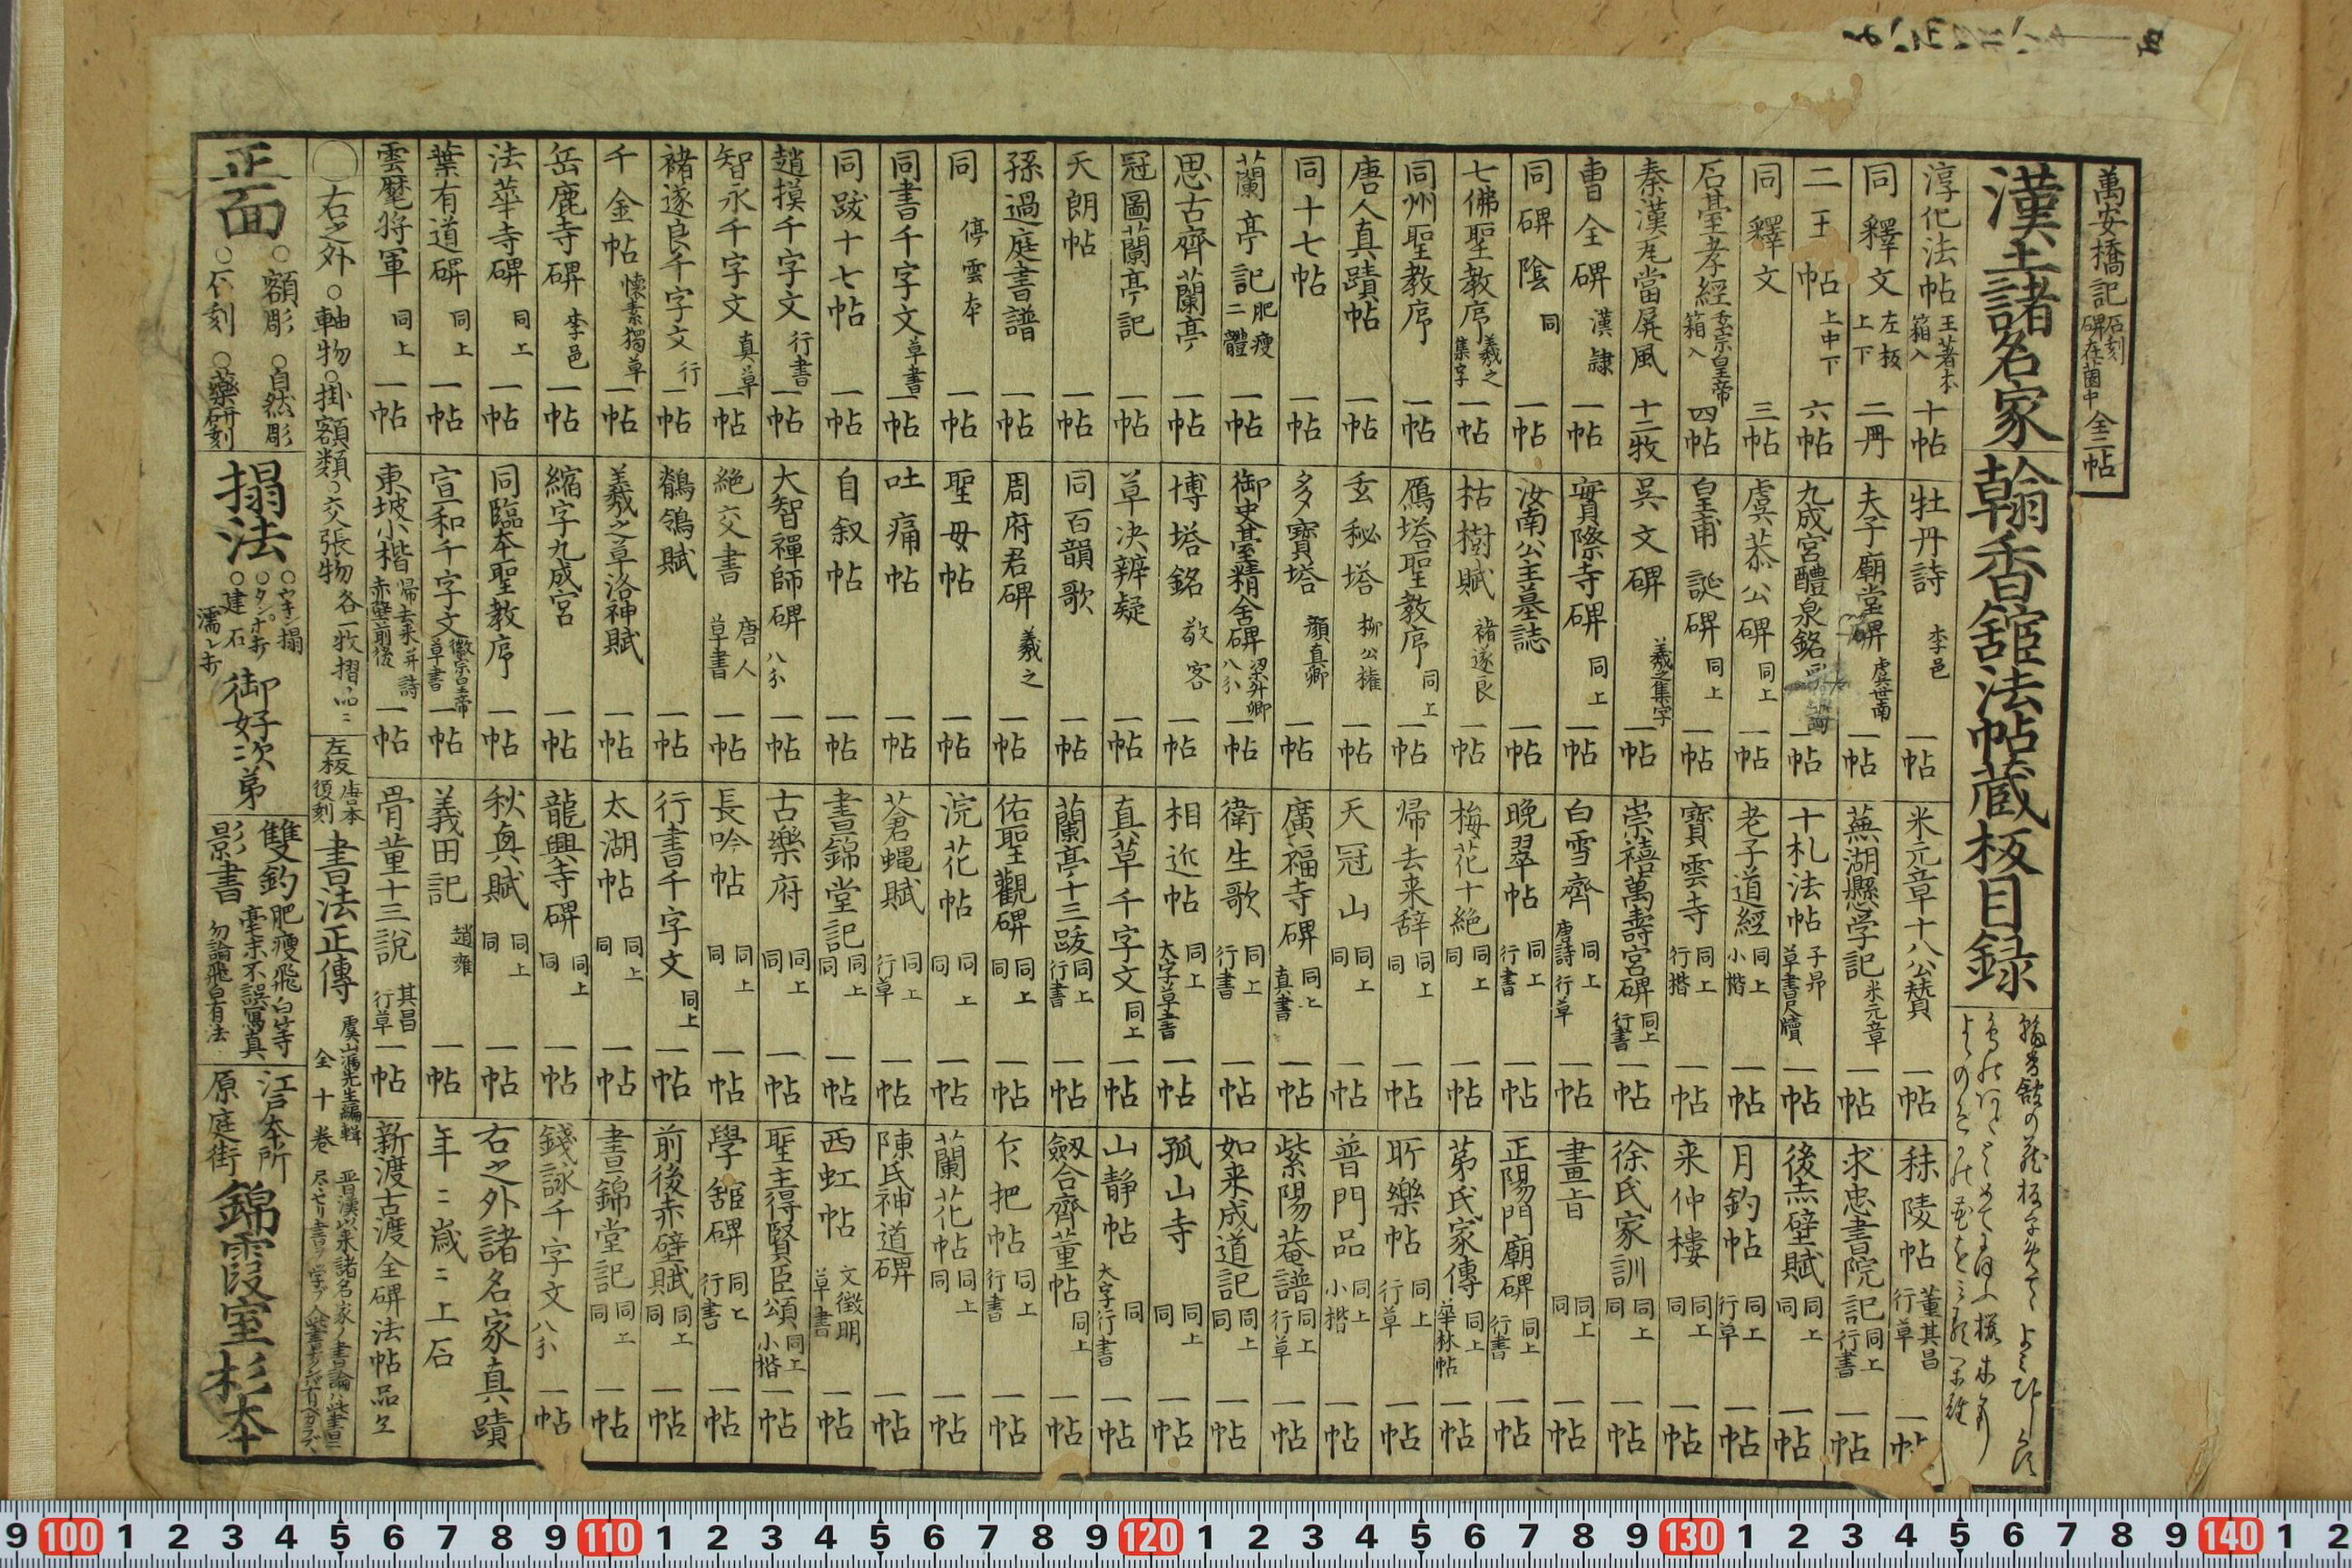 萬安橋記 石刻碑在園中 全二帖
漢土諸名家 翰香舘法帖蔵板目録
淳化法帖 王著本 箱入 十帖
同釋文 左板 上下 二冊
二王帖 上中下 六帖
同釋文 三帖
石臺孝經 玄宗皇帝 箱入 四帖
秦漢瓦當屏風 十二牧
曹全碑 漢隷 一帖
同碑陰 同 一帖
七佛聖教序 羲之集字 一帖
同州聖教序 一帖
唐人真蹟帖 一帖
同十七帖 一帖
蘭亭記 肥瘦二體 一帖
思古齊蘭亭 一帖
冠圖蘭亭記 一帖
天朗帖 一帖
孫過庭書譜 一帖
同 停雲本 一帖
同書千字文 草書 一帖
同跋十七帖 一帖
趙摸千字文 行書 一帖
智永千字文 真草 一帖
褚遂良千字文 行 一帖
千金帖 懐素獨草 一帖
岳鹿寺碑 李邕 一帖
法華寺碑 同上 一帖
葉有道碑 同上 一帖
雲麾将軍 同上 一帖
牡丹詩 李邕 一帖
夫子廟堂碑 虞世南 一帖
九成宮醴泉銘 一帖
虞恭公碑 同上 一帖
皇甫誕碑 同上 一帖
吳文碑 羲之集字 一帖
實際寺碑 同上 一帖
汝南公主墓誌 一帖
枯樹賦 褚遂良 一帖
鴈塔聖教序 同上 一帖
玄秘塔 柳公権 一帖
多寶塔 顔真卿 一帖
御史臺精舍碑 梁昇卿 八分 一帖
博塔銘 敬客 一帖
草决辨疑 一帖
同百韻歌 一帖
周府君碑 羲之 一帖
聖母帖 一帖
吐痛帖 一帖
自叙帖 一帖
大智禪師碑 八分 一帖
絶交書 唐人草書 一帖
鶺鴒賦 一帖
羲之草洛神賦 一帖
縮字九成宮 一帖
同臨本聖教序 一帖
宣和千字文 徽宗皇帝 草書 一帖
東坡小楷 帰去来并詩 赤壁前後 一帖
米元章十八公賛 一帖
蕪湖懸学記 米元章 一帖
十札法帖 子昻 草書尺牘 一帖
老子道經 同上 小楷 一帖
寶雲寺 同上 行楷 一帖
崇禧萬壽宮碑 同上 行書 一帖
白雪齊 同上 唐詩行草 一帖
晩翠帖 同上 行書 一帖
梅花十絶 同上 同 一帖
帰去来辞 同上 同 一帖
天冠山 同上 同 一帖
廣福寺碑 同上 真書 一帖
衛生歌 同上 行書 一帖
相近帖 同上 大字草書 一帖
真草千字文 同上 一帖
蘭亭十三跋 同上 行書 一帖
佑聖觀碑 同上 同 一帖
浣花帖 同上 同 一帖
蒼蝿賦 同上 行草 一帖
晝錦堂記 同上 同 一帖
古樂府 同上 同 一帖
長吟帖 同上 同 一帖
行書千字文 同上 一帖
太湖帖 同上 同 一帖
龍興寺碑 同上 同 一帖
秋興賦 同上 同 一帖
義田記 趙雍 一帖
骨董十三説 其昌 行草 一帖
秣陵帖 董其昌 行草 一帖
求忠書院記 同上 行書 一帖
後赤壁賦 同上 同 一帖
月釣帖 同上 行草 一帖
来仲樓 同上 同 一帖
徐氏家訓 同上 同 一帖
晝盲 同上 同 一帖
正陽門廟碑 同上 行書 一帖
苐氏家傳 同上 華林帖 一帖
所樂帖 同上 行草 一帖
普門品 同上 小楷 一帖
紫陽菴譜 同上 行草 一帖
如来成道記 同上 同 一帖
孤山寺 同上 同 一帖
山静帖 同 大字行書 一帖
劔合齊董帖 同上 一帖
乍把帖 同上 行書 一帖
蘭花帖 同上 同 一帖
陳氏神道碑 一帖
西虹帖 文徴明 草書 一帖
聖主得賢臣頌 同上 小楷 一帖
學舘碑 同上 行書 一帖
前後赤壁賦 同上 同 一帖
晝錦堂記 同上 同 一帖
錢詠千字文 八分 一帖
右之外諸名家真蹟
年ニ歳ニ上石
新渡古渡全碑法帖品々
○右之外○軸物○掛額類○交張物各一牧摺品ニ
左板 唐本復刻 書法正傳 虞山馮先生編輯 全十巻
正面 ○額彫 ○自然彫 ○石刻 ○藥研刻
搨法 ○ウキン搨 ○タンポ打 ○建石 濡レ打 御好次第
雙釣 肥瘦飛白等毫末不誤寫真
影書 勿論飛白有法
江戸本所原庭街 錦霞室杉本